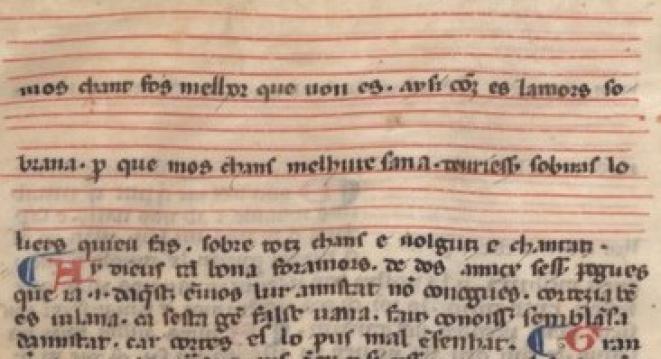 mos chant fos mellor que non es. aysi com es lamors so
brana. p que mos chans melhure sana. deuriesser sobiras lo
uers quieu fas. sobre totz chans e uolgutz e chantatz.
Ay dieus tā bona foramors. de dos amicx sess pogues
que ia .i. daqsts enios lur amistat nō conogues. cortezia bē
es uilana. ca sesta gē falsa uana. fan conoiss semblāsa
damistat. car cortes es lo pus mal ēsenhat. Gran